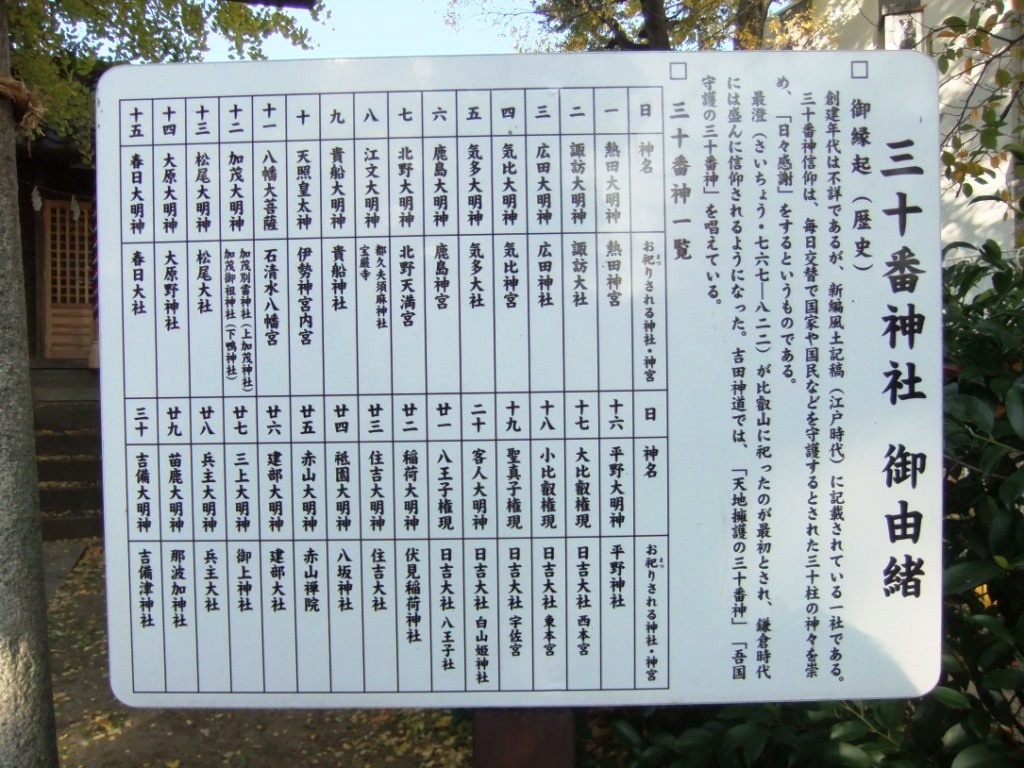 三十番神社 御由緒
□ 御縁起（歴史）
創建年代は不詳であるが、新編風土記稿（江戸時代）に記載されている一社である。
三十番神信仰は、毎日交替で国家や国民などを守護するとされた三十柱の神々を崇
め、「日々感謝」をするというものである。
最澄（さいちょう・七六七―八二二）が比叡山に祀ったのが最初とされ、鎌倉時代
には盛んに信仰されるようになった。吉田神道では、「天地擁護の三十番神」「吾国
守護の三十番神」を唱えている。
□ 三十番神一覧
日 神名 お祀りされる神社・神宮
一 熱田大明神 熱田神宮
二 諏訪大明神 諏訪大社
三 広田大明神 広田神社
四 気比大明神 気比神宮
五 気多大明神 気多大社
六 鹿島大明神 鹿島神宮
七 北野大明神 北野天満宮
八 江文大明神 都久夫須麻神社
宝厳寺
九 貴船大明神 貴船神社
十 天照皇太神 伊勢神宮内宮
十一 八幡大菩薩 石清水八幡宮
十二 加茂大明神 加茂別雷神社（上加茂神社）
加茂御祖神社（下鴨神社）
十三 松尾大明神 松尾大社
十四 大原大明神 大原野神社
十五 春日大明神 春日大社
日 神名 お祀りされる神社・神宮
十六 平野大明神 平野神社
十七 大比叡権現 日吉大社 西本宮
十八 小比叡権現 日吉大社 東本宮
十九 聖真子権現 日吉大社 宇佐宮
二十 客人大明神 日吉大社 白山姫神社
廿一 八王子権現 日吉大社 八王子社
廿二 稲荷大明神 伏見稲荷神社
廿三 住吉大明神 住吉大社
廿四 祗園大明神 八坂神社
廿五 赤山大明神 赤山禅院
廿六 建部大明神 建部大社
廿七 三上大明神 御上神社
廿八 兵主大明神 兵主大社
廿九 苗鹿大明神 那波加神社
三十 吉備大明神 吉備津神社